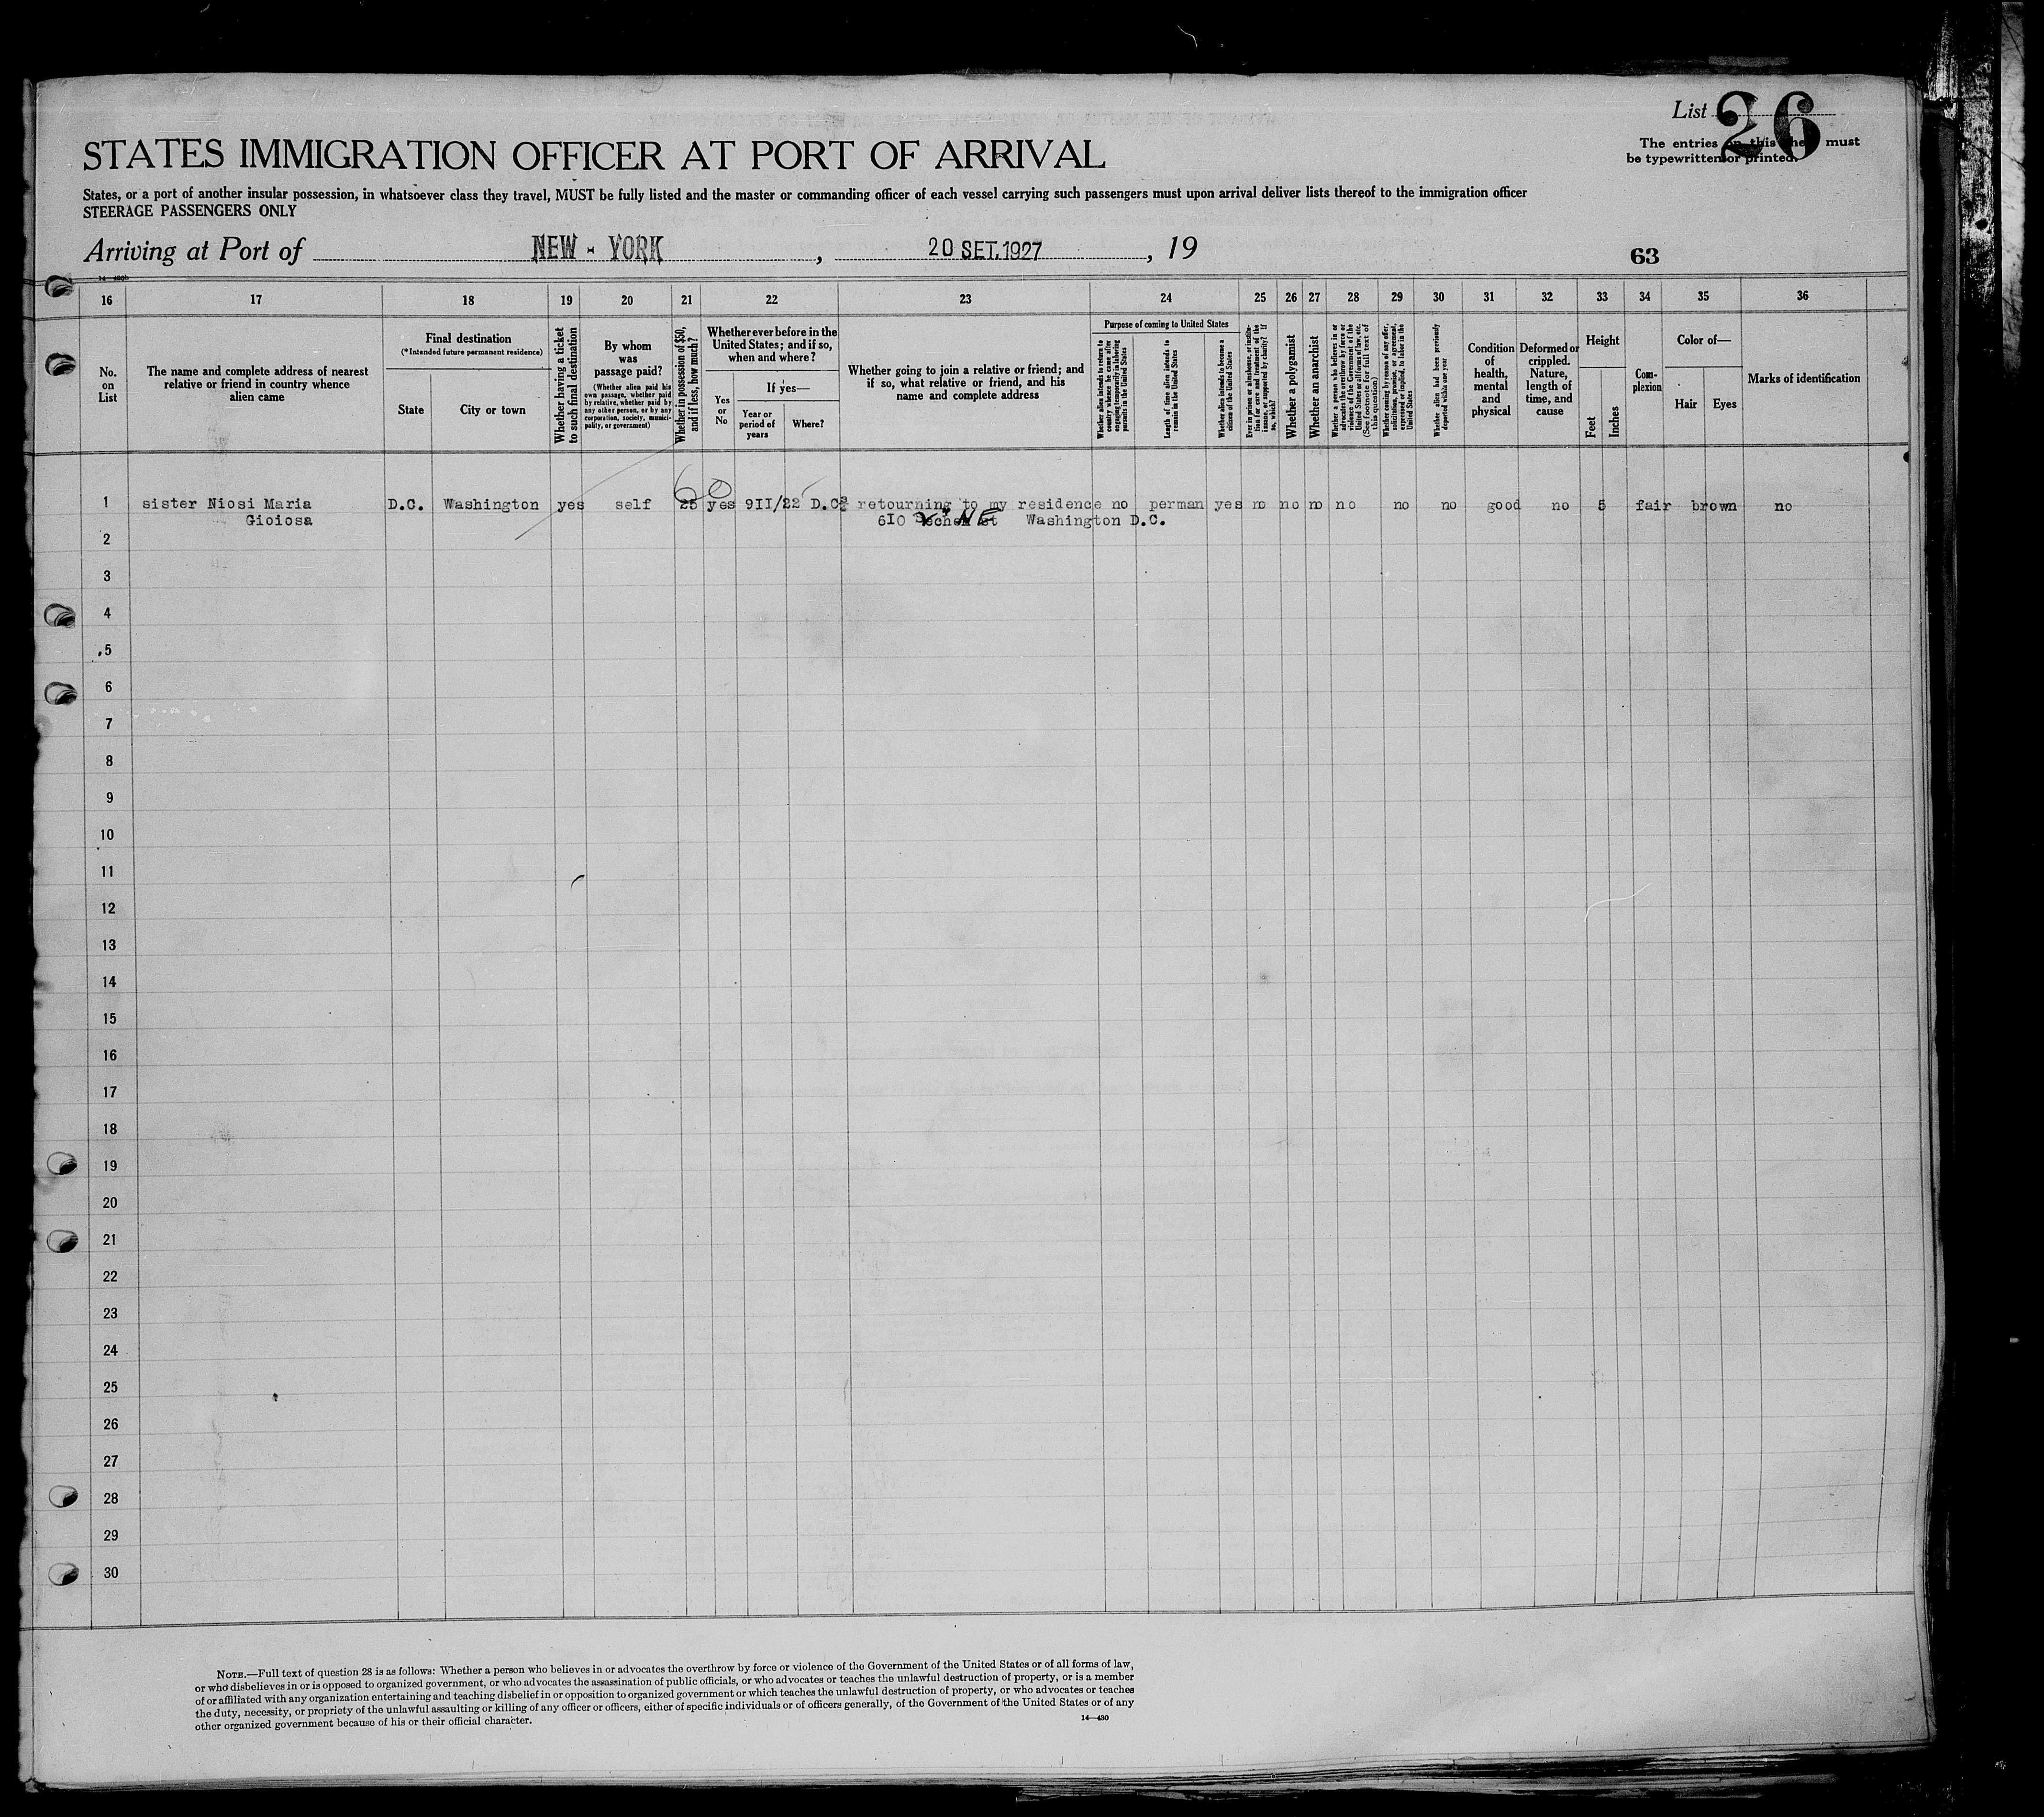 List 26
The entries on this sheet must
be typewritten or printed.
STATES IMMIGRATION OFFICER AT PORT OF ARRIVAL
States, or a port of another insular possession, in whatsoever class they travel, MUST be fully listed and the master or commanding officer of each vessel carrying such passengers must upon arrival deliver lists thereof to the immigration officer
STEERAGE PASSENGERS ONLY
Arriving at Port of NEW - YORK, 20 SET. 1927, 19
63
16 17 18 19 20 21 22 23 24 25 26 27 28 29 30 31 32 33 34 35 36
No.
on
List
The name and complete address of nearest
relative or friend in country whence
alien came
Final destination
(*Intended future permanent residence)
State
City or town
Whether having a ticket
to such final destination
By whom
was
passage paid?
(Whether alien paid his
own passage, whether paid
by relative, whether paid by
any other person, or by any
corporation, society, munici-
pality, or government)
Whether in possession of $50,
and if less, how much?
Whether ever before in the
United States; and if so,
when and where?
Yes
or
No
If yes—
Year or
period of
years
Where?
Whether going to join a relative or friend; and
if so, what relative or friend, and his
name and complete address
Purpose of coming to United States
Whether alien intends to return to
country whence he came after
engaging temporarily in laboring
pursuits in the United States
Length of time alien intends to
remain in the United States
Whether alien intends to become a
citizen of the United States
Ever in prison or almshouse, or institu-
tion for care and treatment of the
insane, or supported by charity? If
so, which?
Whether a polygamist
Whether an anarchist
Whether a person who believes in or
advocates the overthrow by force or
violence of the Government of the
United States or all forms of law, etc.
(See footnote for full text of
this question)
Whether coming by reason of any offer,
solicitation, promise, or agreement,
expressed or implied, to labor in the
United States
Whether alien had been previously
deported within one year
Condition
of
health,
mental
and
physical
Deformed or
crippled.
Nature,
length of
time, and
cause
Height
Feet
Inches
Com-
plexion
Color of—
Hair
Eyes
Marks of identification
1 sister Niosi Maria D.C. Washington yes self 25 60 yes 9II/22 D.C. retourning to my residence no perman yes no no no no no no good no 5 fair brown no
Gioiosa 6I0 NE st Washington D.C.
2
3
4
5
6
7
8
9
10
11
12
13
14
15
16
17
18
19
20
21
22
23
24
25
26
27
28
29
30
NOTE.—Full text of question 28 is as follows: Whether a person who believes in or advocates the overthrow by force or violence of the Government of the United States or of all forms of law,
or who disbelieves in or is opposed to organized government, or who advocates the assassination of public officials, or who advocates or teaches the unlawful destruction of property, or is a member
of or affiliated with any organization entertaining and teaching disbelief in or opposition to organized government or which teaches the unlawful destruction of property, or who advocates or teaches
the duty, necessity, or propriety of the unlawful assaulting or killing of any officer or officers, either of specific individuals or of officers generally, of the Government of the United States or of any
other organized government because of his or their official character.
14—430